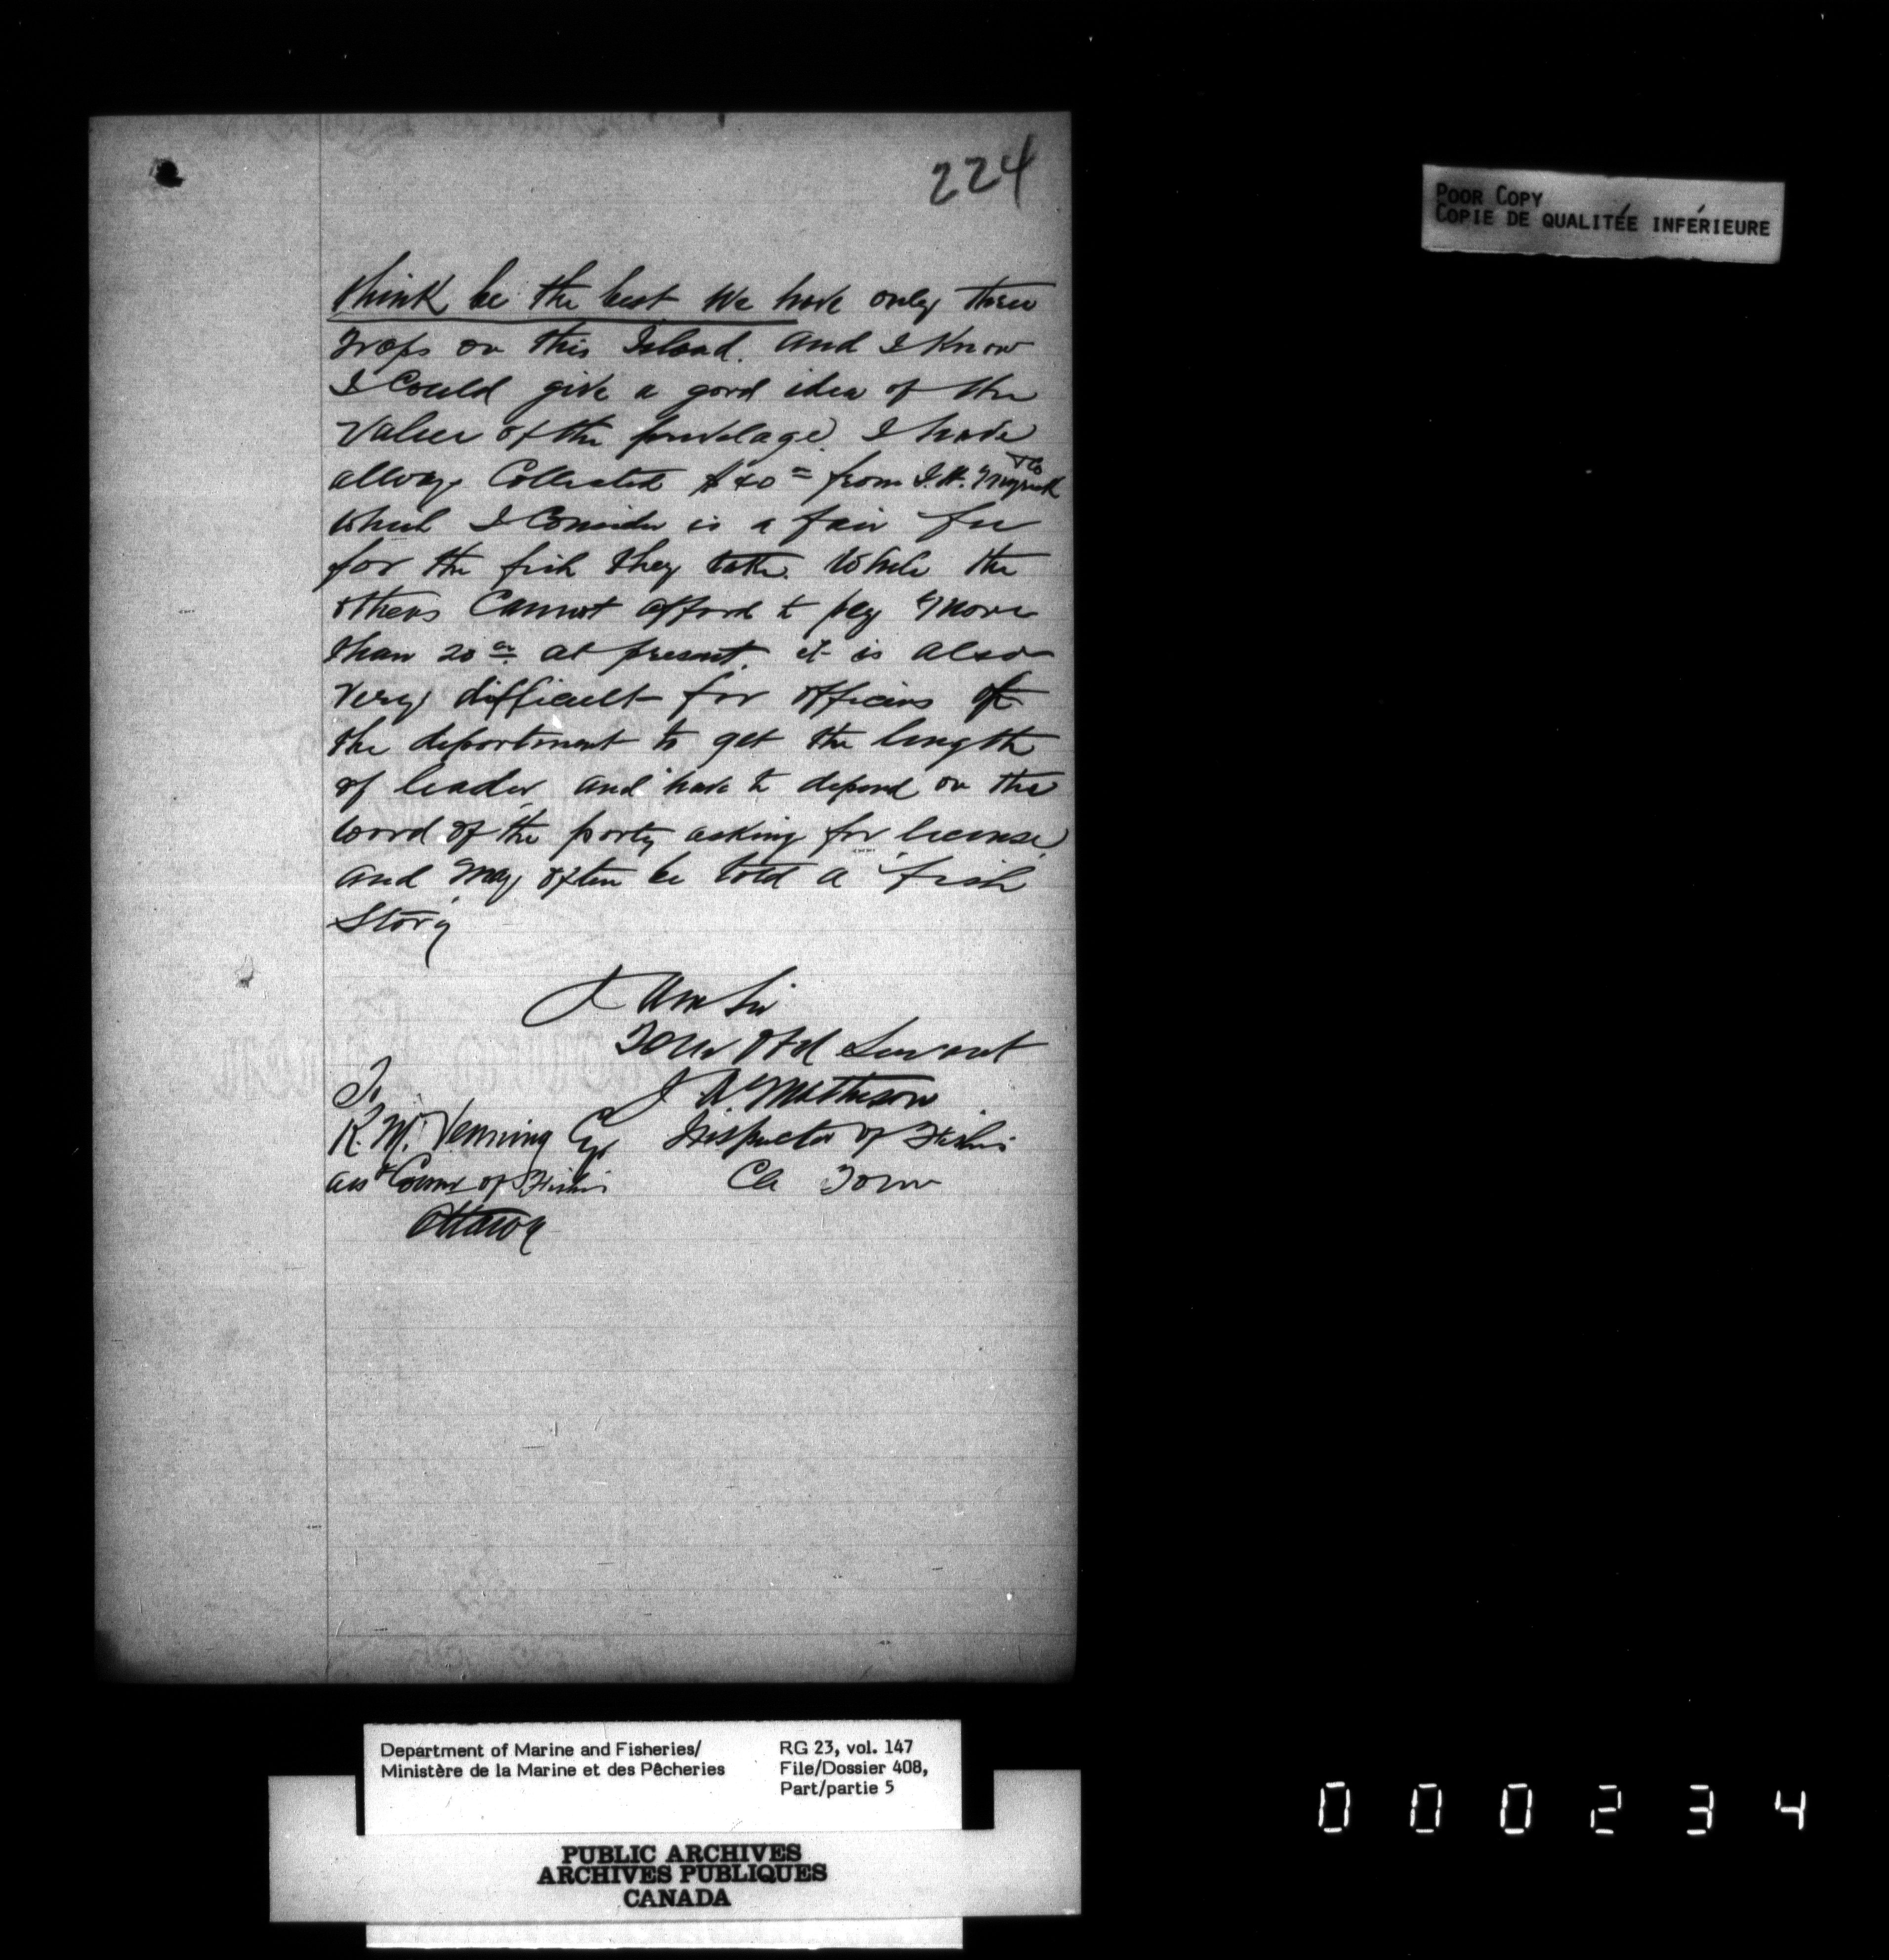 224
POOR COPY
COPIE DE QUALITÉE INFÉRIEURE
think be the best We have only three
traps on this Island. and I Know
I Could give a good idea of the
Value of the privelage I have
allways Collected $40= from J.H. Myrick &Co
which I Consider is a fair fee
for the fish they take. While the
others Cannot afford to pay more
than 20 at present. it is also
very difficult for officers of
the department to get the length
of leader and have to depend on the
word of the party asking for license
and may often be told a "fish
Story"
I am Sir
Your Obd Servant
J A Matheson
Inspector of Fisheries
Ch Town
To
R. N. Venning Esq
ass't Comr of Fisheries
Ottawa
Department of Marine and Fisheries/
Ministère de la Marine et des Pêcheries
RG 23, vol. 147
File/Dossier 408,
Part/partie 5
PUBLIC ARCHIVES
ARCHIVES PUBLIQUES
CANADA
000234